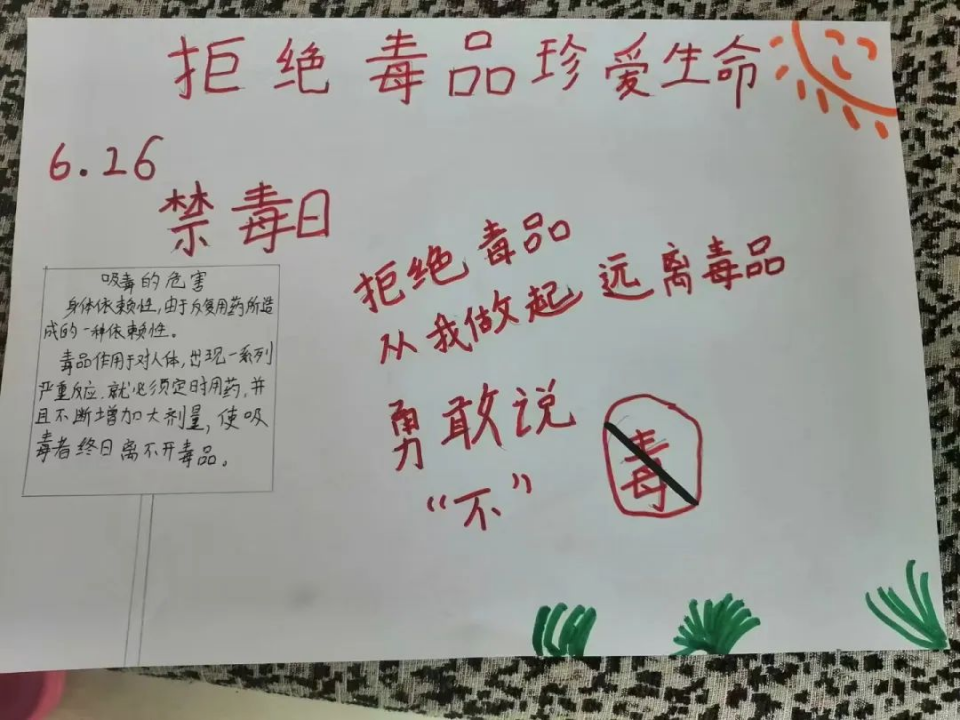 拒绝毒品珍爱生命
6.26
禁毒日
吸毒的危害
身体依赖性,由于反复用药所造
成的一种依赖性。
毒品作用于对人体,出现一系列
严重反应.就必须定时用药,并
且不断增加大剂量,使吸
毒者终日离不开毒品。
拒绝毒品
从我做起 远离毒品
勇敢说
“不”
毒